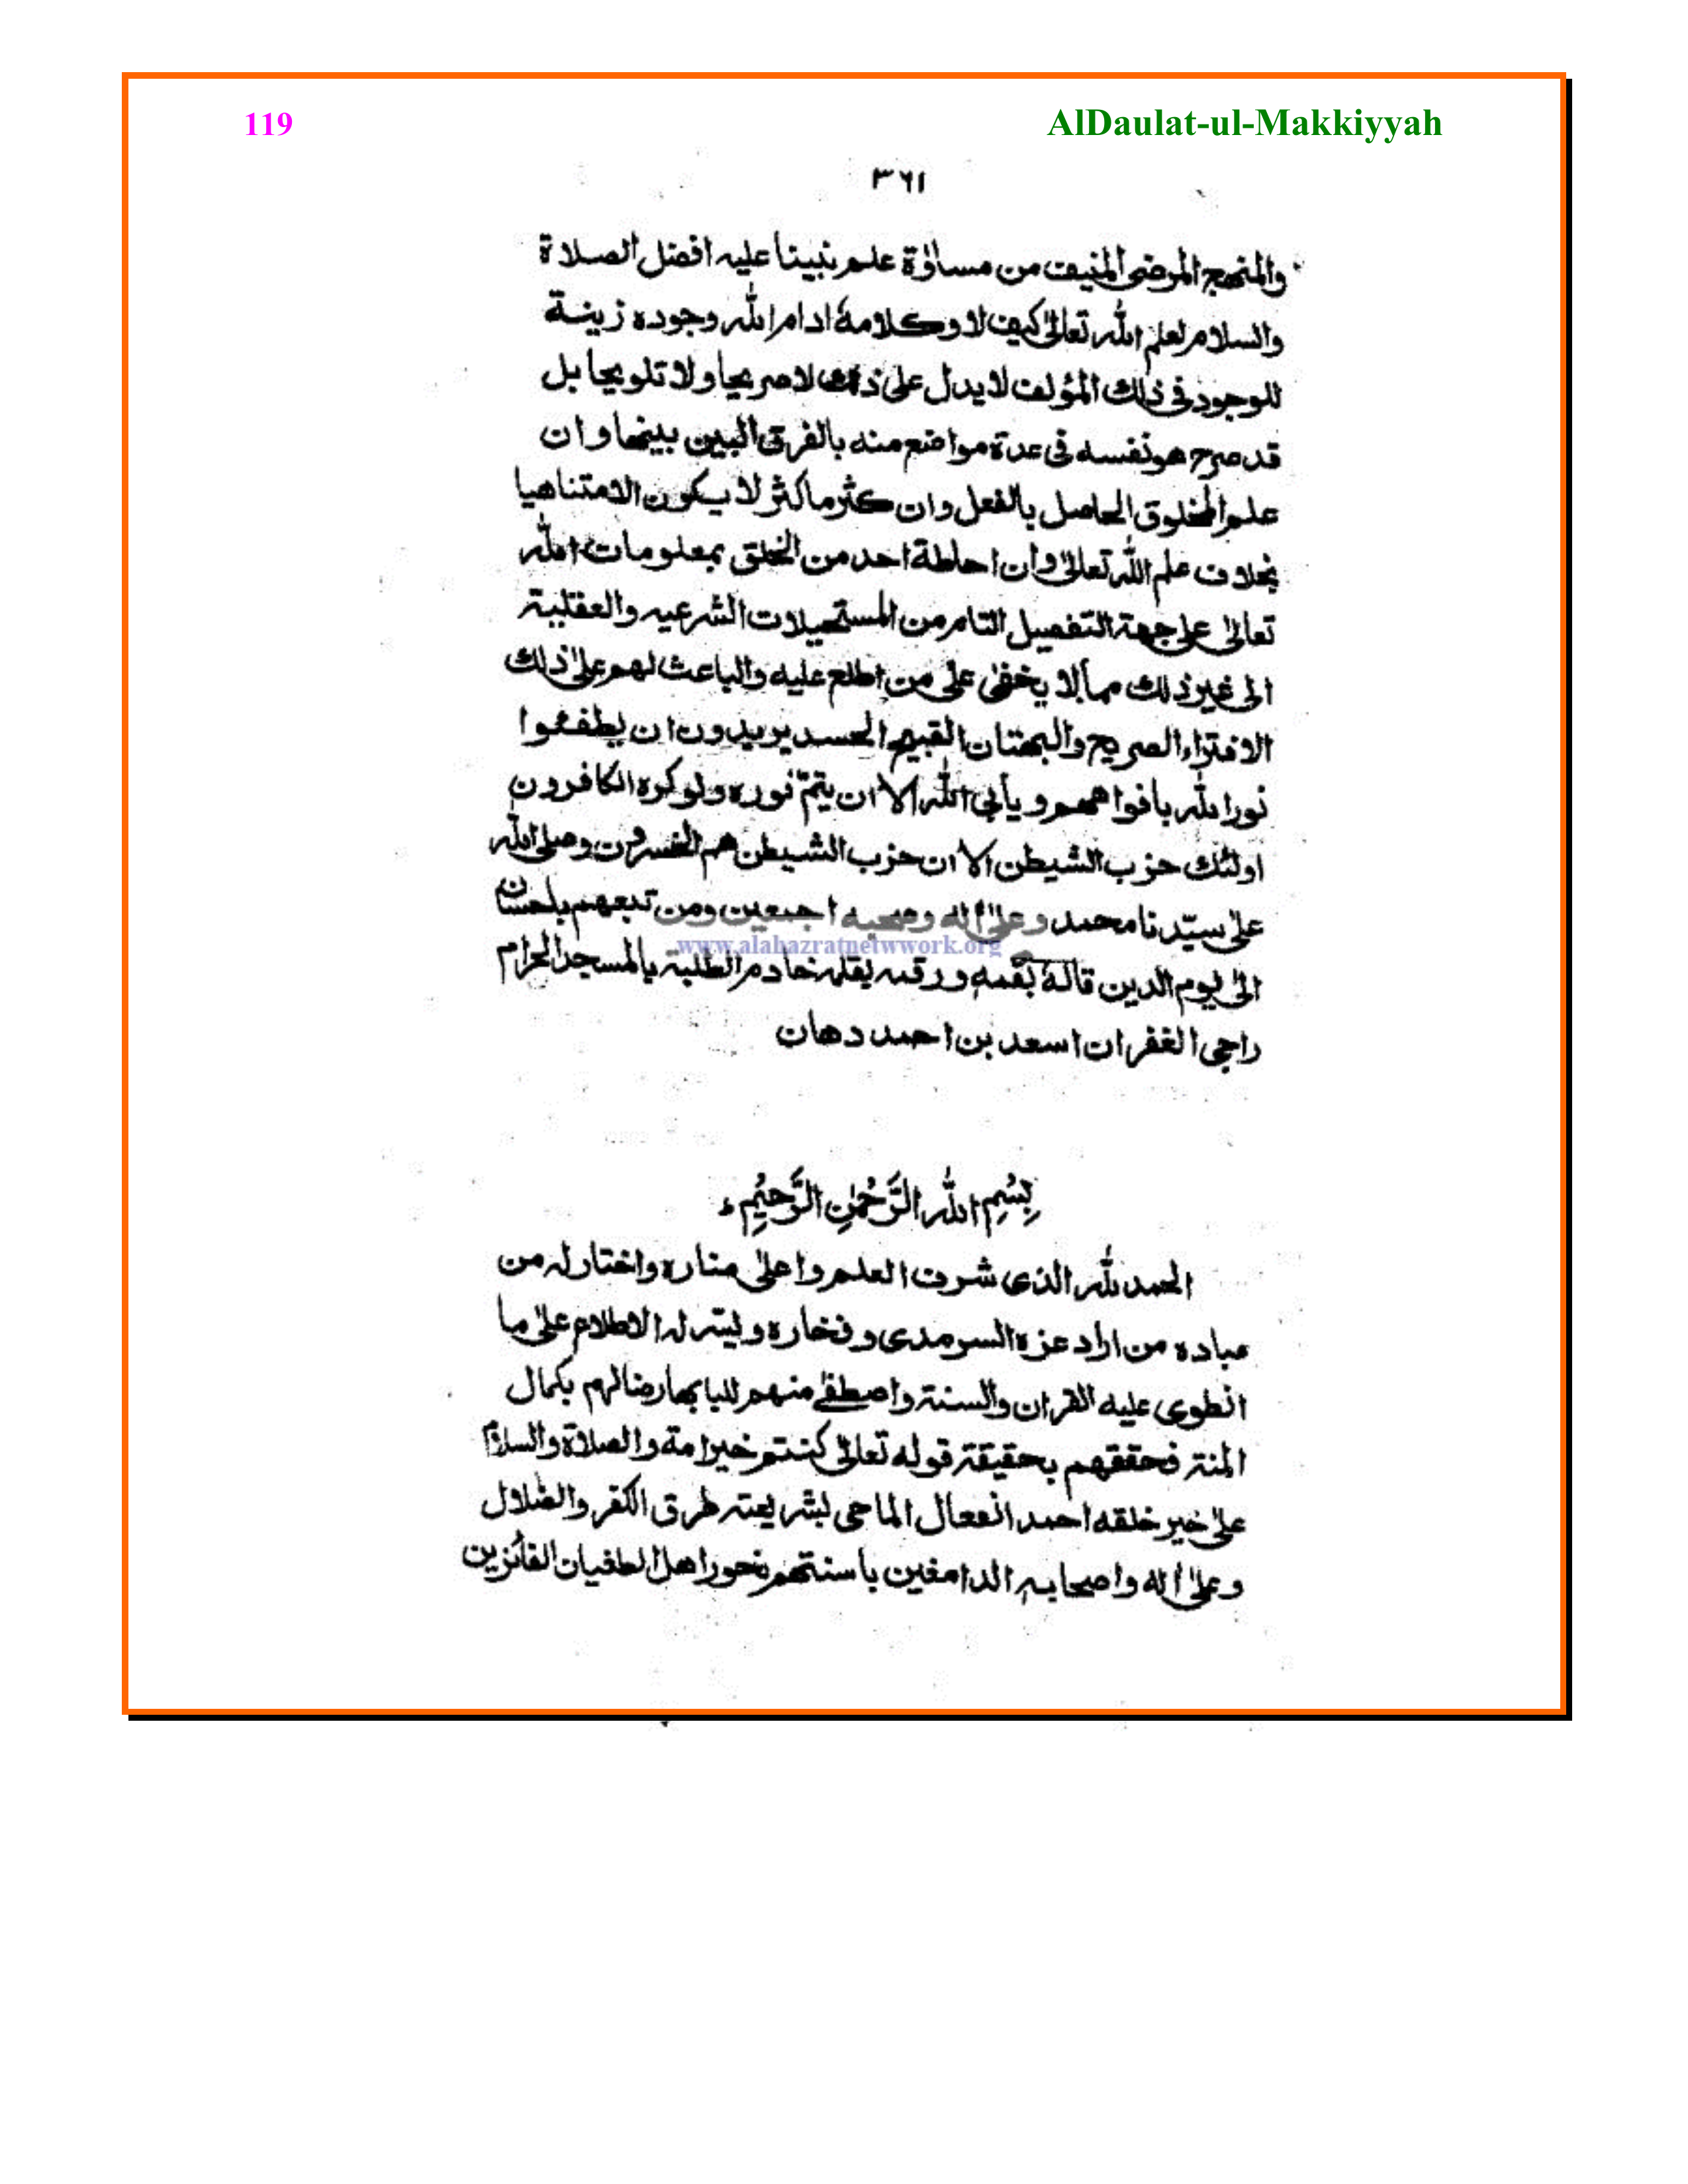 119 AlDaulat-ul-Makkiyyah
٣٦١
والمنهج المرضى المنيف من مساوٰاة علم نبينا عليه افضل الصلاة
والسلام لعلم الله تعالىٰ كيف لا وكلامهٗ ادام الله وجوده زينة
للوجود فى ذلك المؤلف لا يدل على ذلك لا صريحا ولا تلويحا بل
قد صرح هو نفسه فى عدة مواضع منه بالفرق البين بينهما وان
علم المخلوق الحاصل بالفعل وان كثر ما كثر لا يكون الا متناهيا
بخلاف علم الله تعالىٰ وان احاطة احد من الخلق بمعلومات الله
تعالىٰ على جهة التفصيل التام من المستحيلات الشرعيه والعقلية
الى غير ذلك مما لا يخفىٰ على من اطلع عليه والباعث لهم علىٰ ذلك
الافتراء الصريح والبهتان القبيح الحسد يريدون ان يطفئوا
نور الله بافواههم ويأبى الله الا ان يتمّ نوره ولو كره الكافرون
اولئك حزب الشيطن الا ان حزب الشيطن هم الخسرون وصلى الله
علىٰ سيّدنا محمد وعلىٰ اله وصحبه اجمعين ومن تبعهم باحسان
www.alahazratnetwwork.org
الىٰ يوم الدين قالهٗ بفمه ورقمه بقلمه خادم الطلبة بالمسجد الحرام
راجى الغفران اسعد بن احمد دهان
بِسْمِ الله الرَّحْمٰنِ الرَّحِيْمِ ء
الحمد لله الذى شرف العلم واعلىٰ مناره واختار له من
عباده من اراد عزه السرمدى وفخاره ويسّر له الاطلاع علىٰ ما
انطوى عليه القران والسنة واصطفىٰ منهم للبابها رضا لهم بكمال
المنة فحققهم بحقيقة قوله تعالىٰ كنتم خير امة والصلاة والسلام
علىٰ خير خلقه احمد الفعال الماحى بشريعته طرق الكفر والضلال
وعلىٰ اله واصحابه الدامغين باسنتهم نحور اهل الطغيان الفائزين